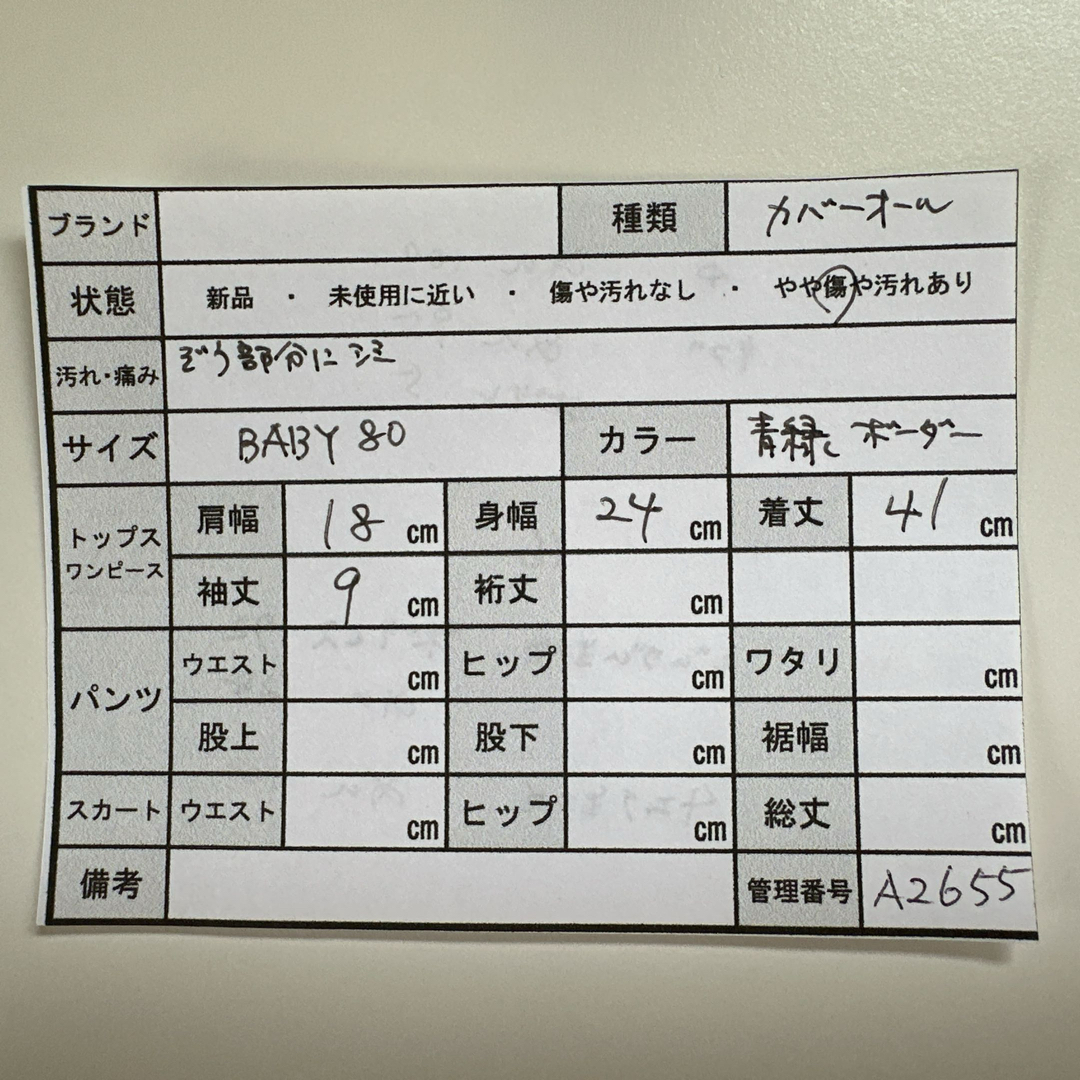 ブランド 種類 カバーオール
状態 新品 ・ 未使用に近い ・ 傷や汚れなし ・ やや傷や汚れあり
汚れ・痛み ぞう部分にシミ
サイズ BABY 80 カラー 青緑 ボーダー
トップス
ワンピース
肩幅 18 cm 身幅 24 cm 着丈 41 cm
袖丈 9 cm 裄丈 cm
パンツ
ウエスト cm ヒップ cm ワタリ cm
股上 cm 股下 cm 裾幅 cm
スカート ウエスト cm ヒップ cm 総丈 cm
備考 管理番号 A2655